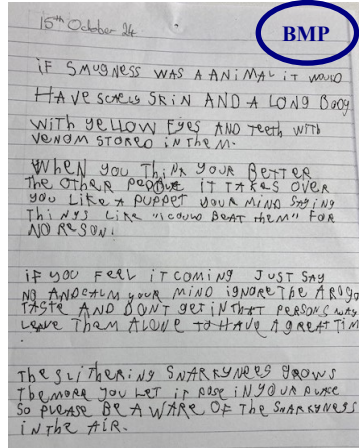 15th October 24
BMP
if SMUGNESS WAS A ANIMAL iT WOULD
HAVE SCALEY SKIN AND A LONG BODY
WITH YELLOW EYES AND TEETH WITH
VENOM STORED IN THEM.
WHEN YOU THINK YOUR BETTER
THE OTHER PEOPLE IT TAKES OVER
YOU LIKE A PUPPET YOUR MIND SAYING
THINGS LIKE "I COULD BEAT THEM" FOR
NO RESON!
iF YOU FEEL IT COMING JUST SAY
NO AND CALM YOUR MIND IGNORE THE
TASTE AND DONT GET IN THAT PERSONS WAY
LEAVE THEM ALONE TO HAVE A GREAT TIM
THE SLITHERING SNARKYNEES GROWS
THE MORE YOU LET IT IN YOUR
SO PLEASE BE A WARE OF THE SNARKYNESS
IN THE AIR.